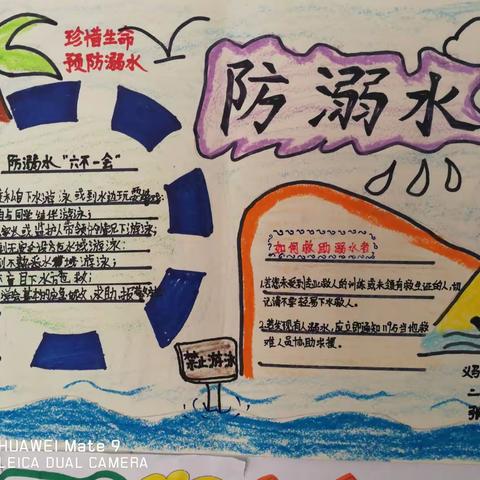 珍惜生命
预防溺水
防溺水
防溺水"六不一会"
私自下水游泳或到水边玩
自与同学结伴游泳;
家长或监护人带领的情况下游泳;
到无安全设施水域游泳;
到不熟悉水域游泳;
不盲目下水施救;
如何救助溺水者
1.若您未受到专业救人的训练或未领有救生证的人,切
记请不要轻易下水救人。
2.若发现有人溺水,应立即通知119与当地救
难人员协助求援。
禁止游泳
HUAWEI Mate 9
LEICA DUAL CAMERA